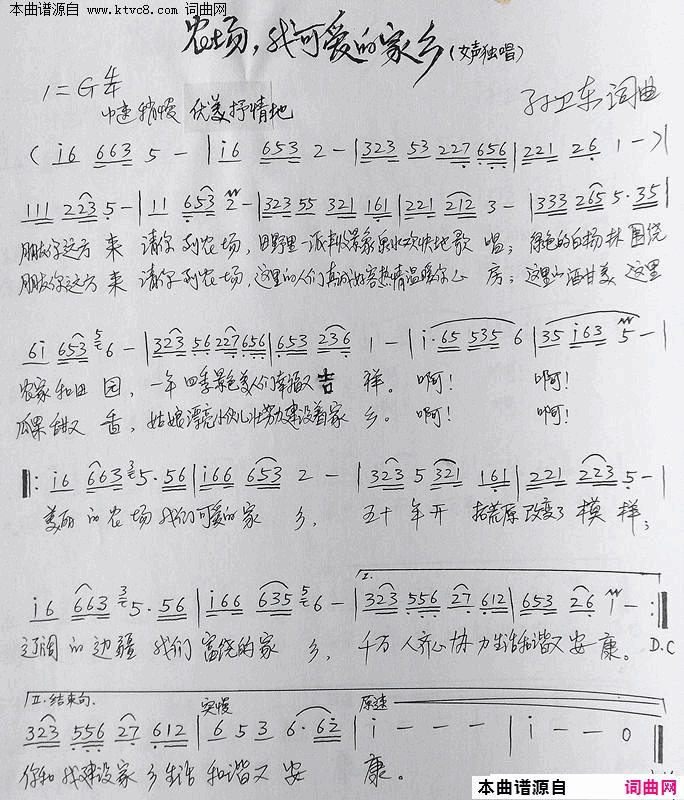 本曲谱源自 www.ktvc8.com 词曲网
农场,我可爱的家乡(女声独唱)
1=G 4/4
中速稍慢 优美抒情地
孙卫东词曲
( i6 663 5 - | i6 653 2 - | 323 53 227 656 | 221 26 1 - ) |
111 223 5 - | 11 653 2 - | 323 55 321 161 | 221 212 3 - | 333 265 5·35 |
朋友你远方来 请你到农场,田野里一派丰收景象泉水欢快地歌唱;绿色的白杨林围绕
朋友你远方来 请你到农场,这里的人们真诚好客热情温暖你心房;这里的酒甘美 这里
6i 653 5 6 - | 323 56 227 656 | 653 236 1 - | i·65 535 6 | 35 i63 5 - |
农家和田园,一年四季景色美人们幸福又吉祥。啊! 啊!
瓜果甜又香,姑娘漂亮小伙儿壮努力建设着家乡。啊! 啊!
‖: i6 663 3 5·56 | i66 653 2 - | 323 5 321 161 | 221 223 5 - |
美丽的农场我们可爱的家乡,五十年开拓荒原改变了模样;
i6 663 3 5·56 | i66 635 5 6 - | I. 323 556 27 612 | 653 26 i - :‖
辽阔的边疆我们富饶的家乡,千万人齐心协力生活和谐又安康。D.C
II.结束句. 突慢 原速
323 556 27 612 | 6 5 3 6·62 | i - - - | i - - 0 ‖
你和我建设家乡生活和谐又安康。
本曲谱源自 词曲网